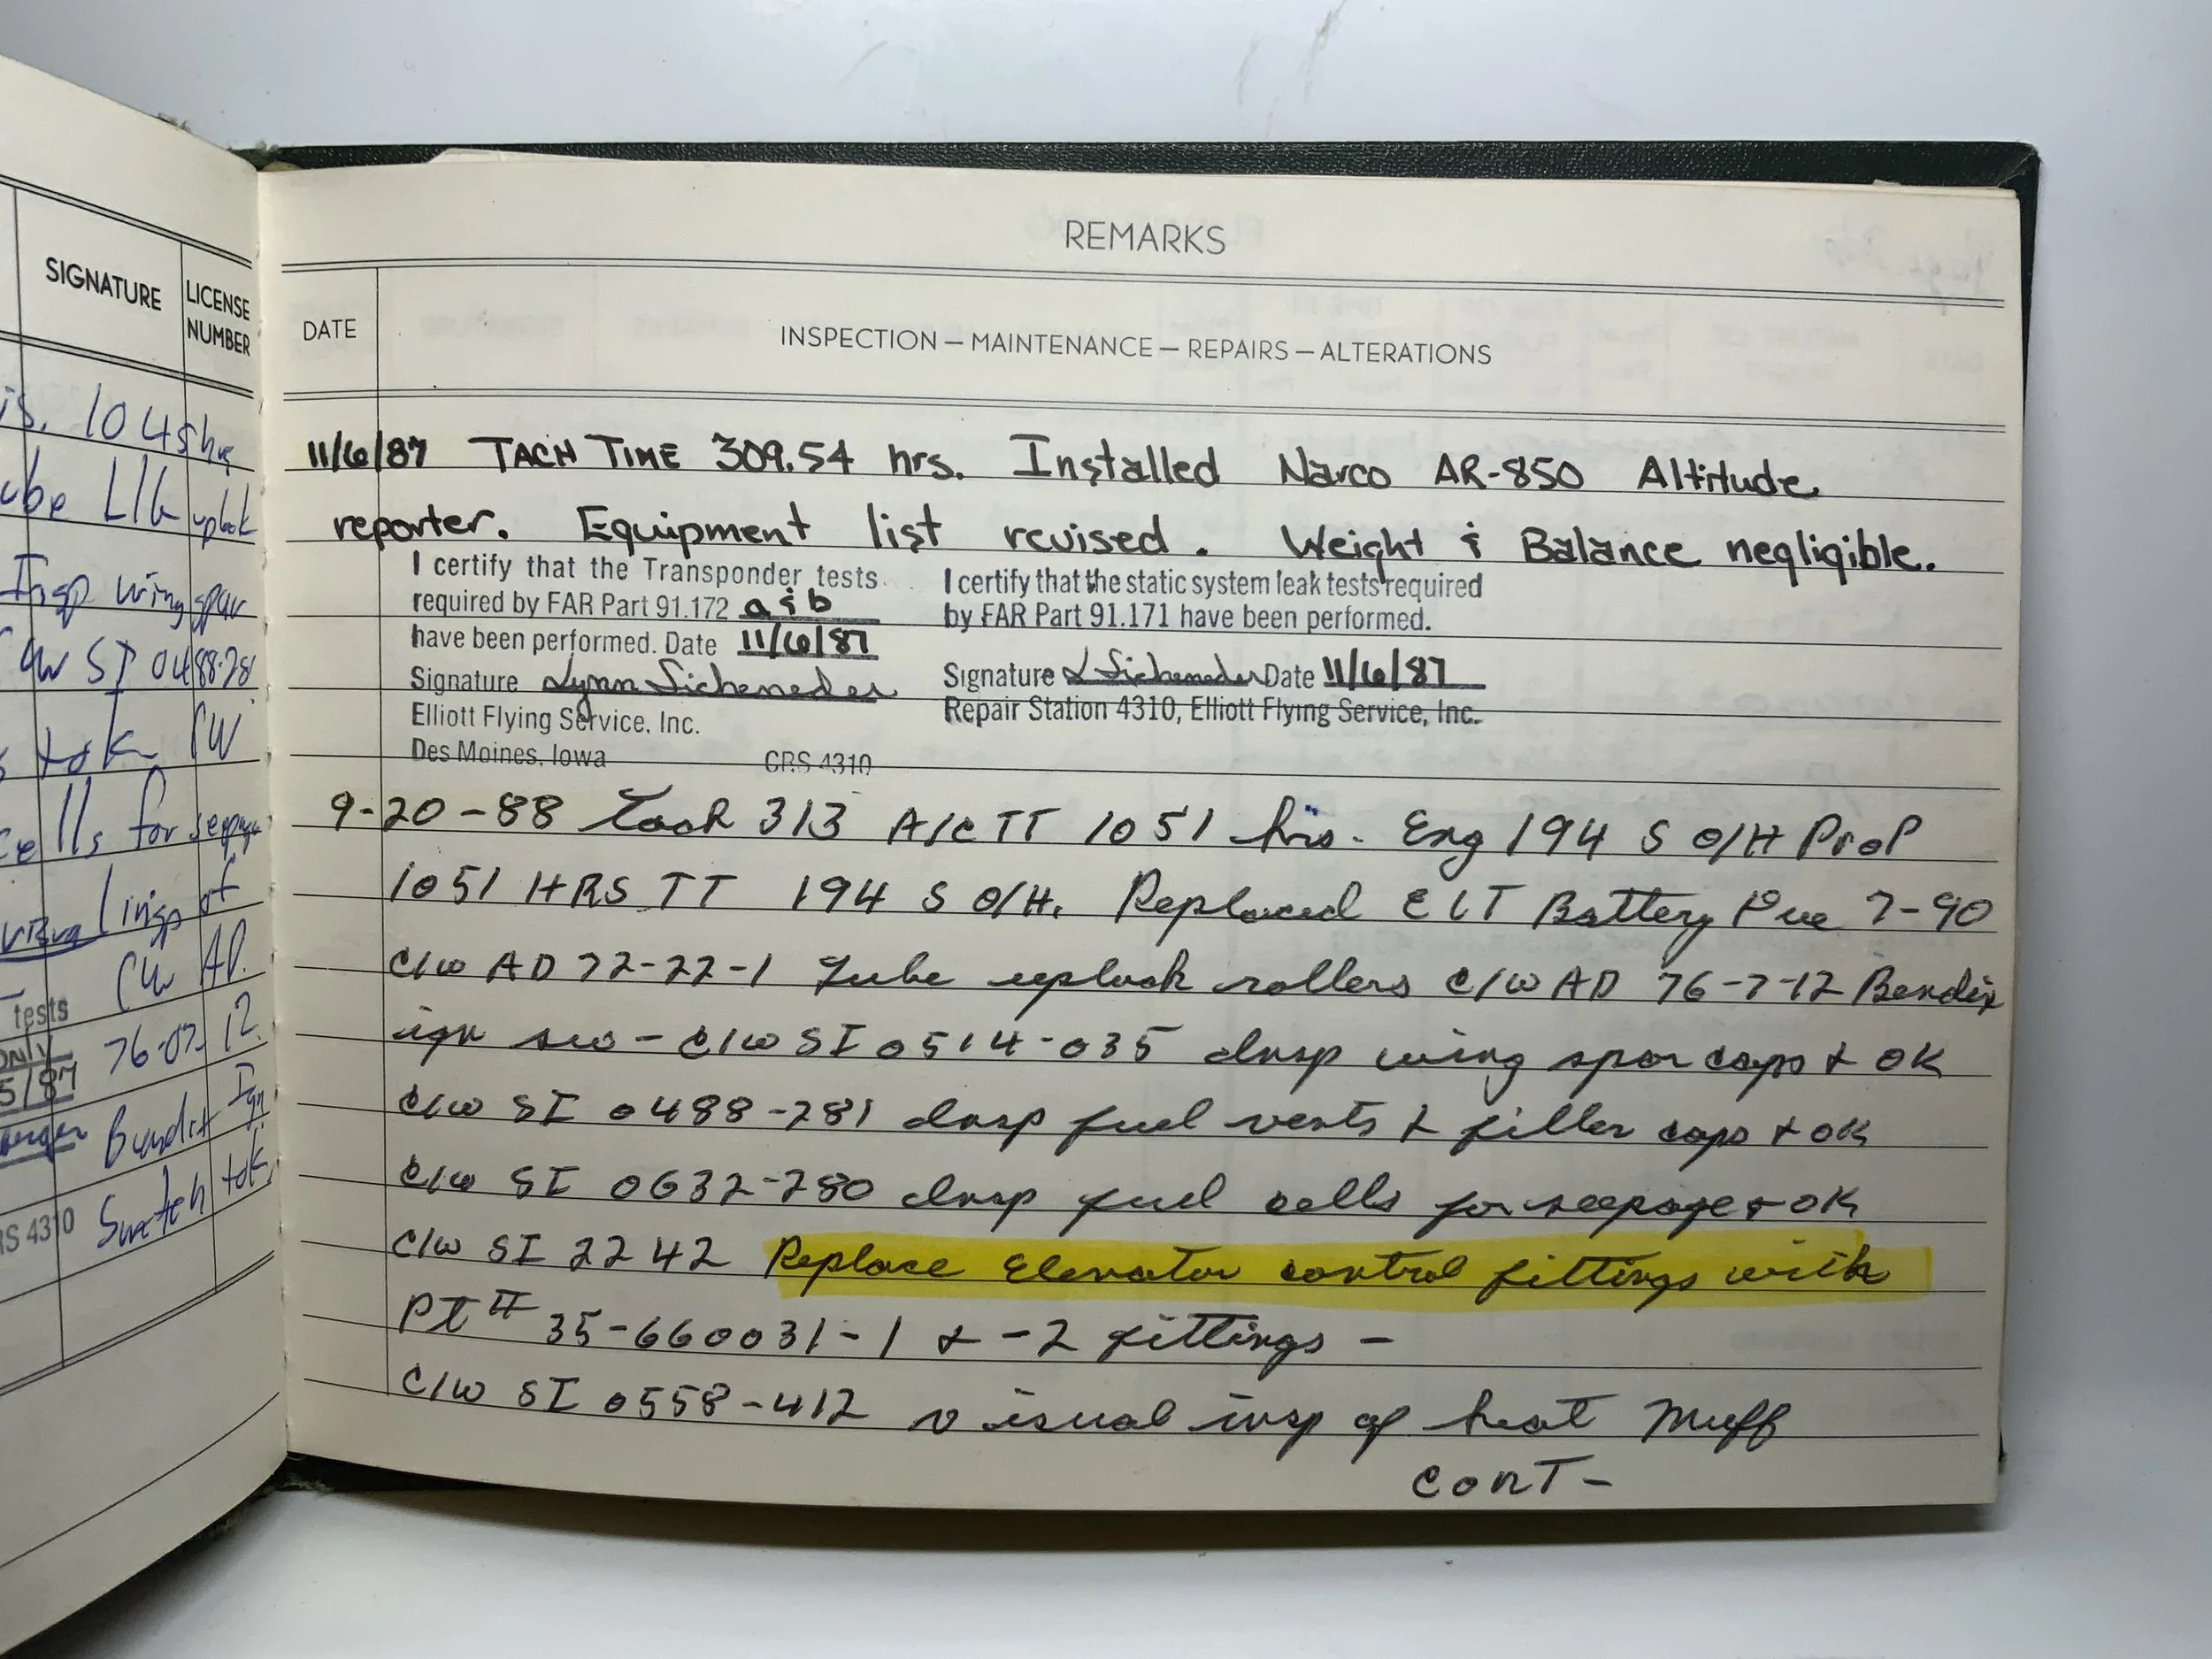 SIGNATURE
LICENSE
NUMBER
is. 1045 hrs
ube LIG uplock
Insp wing spar
CW SI 0488-281
tok CW
cells for seepage
insp of
CW AD
tests
76-07-12
ONLY
5/87
Bendix Ign
Switch tok
RS 4310
REMARKS
DATE
INSPECTION — MAINTENANCE — REPAIRS — ALTERATIONS
11/6/87 TACH TIME 309.54 hrs. Installed Narco AR-850 Altitude
reporter. Equipment list revised. Weight & Balance negligible.
I certify that the Transponder tests
required by FAR Part 91.172 a & b
have been performed. Date 11/6/87
Signature Lynn Sicheneder
Elliott Flying Service, Inc.
Des Moines, Iowa CRS 4310
I certify that the static system leak tests required
by FAR Part 91.171 have been performed.
Signature L Sicheneder Date 11/6/87
Repair Station 4310, Elliott Flying Service, Inc.
9-20-88 Tach 313 A/C TT 1051 hrs. Eng 194 S O/H Prop
1051 HRS TT 194 S O/H. Replaced ELT Battery Due 7-90
C/W AD 72-22-1 Lube uplock rollers C/W AD 76-7-12 Bendix
ign sw - C/W SI 0514-035 insp wing spar caps + OK
C/W SI 0488-281 insp fuel vents & filler caps + OK
C/W SI 0632-280 insp fuel cells for seepage + OK
C/W SI 2242 Replace Elevator control fittings with
Pt # 35-660031-1 & -2 fittings -
C/W SI 0558-412 visual insp of heat muff
CONT-